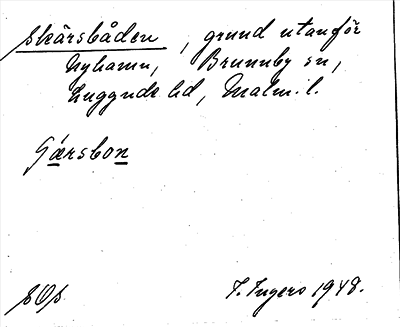 Skärsbåden, grund utanför
Nyhamn, Brunnby sn,
Luggude hd, Malm. l.
Gærsbon
SOp
I. Ingers 1948.